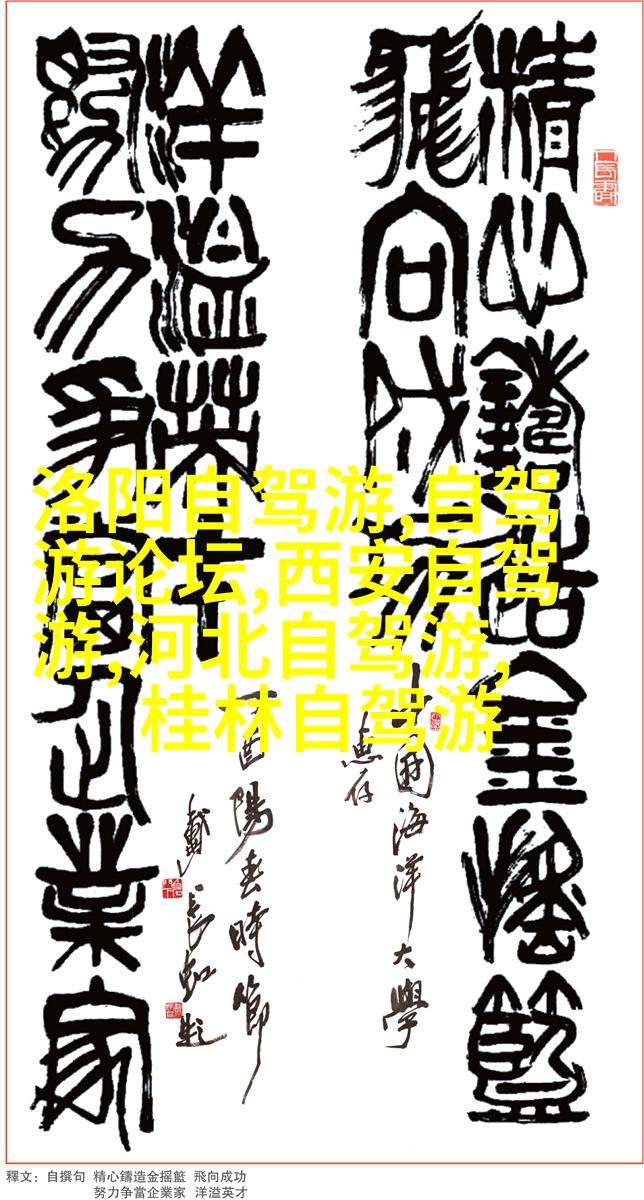 精心鑄造金搖籃
飛向成功
中國海洋大學
惠存
洋溢英才
努力爭當企業家
酉陽春時節
戴長虹題
洛阳自驾游,自驾
游论坛,西安自驾
游,河北自驾游,
桂林自驾游
釋文：自撰句 精心鑄造金摇籃 飛向成功
努力争當企業家 洋溢英才